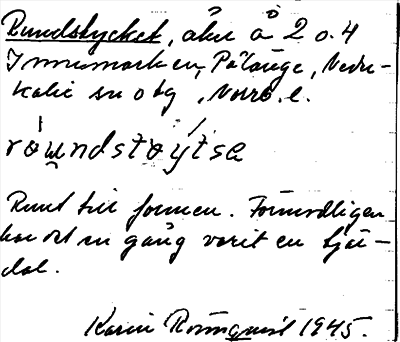 Rundstycket, åker å 2 o. 4
Innumarken, Pålänge, Neder-
kalix sn o tg, Norrb. l.
róundstöytse
Runt till formen. Förmodligen
har det en gång varit en sjö-
del.
Karin Rönnquist 1945.